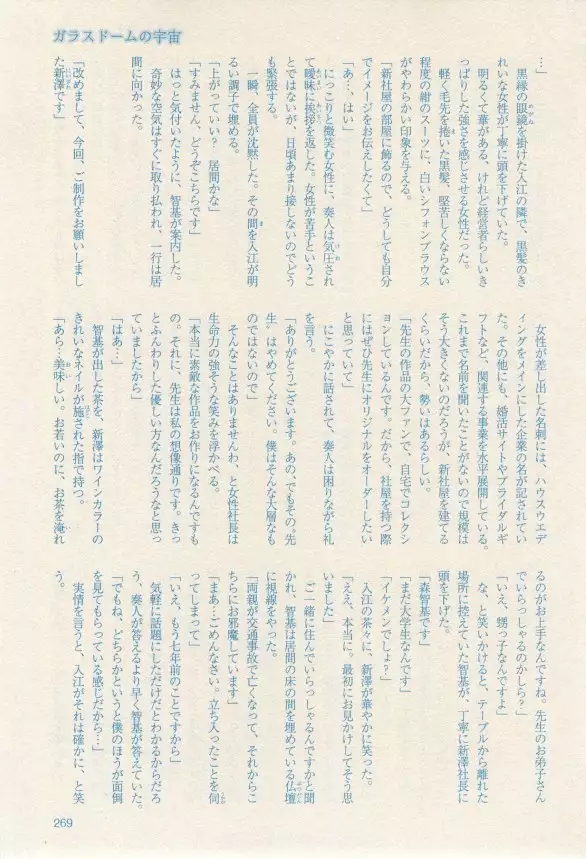 ガラスドームの宇宙
…」
　黒縁の眼鏡を掛けた入江の隣で、黒髪のき
れいな女性が丁寧に頭を下げていた。
　明るくて華がある、けれど経営者らしいき
っぱりした強さを感じさせる女性だった。
　軽く毛先を捲いた黒髪、堅苦しくならない
程度の紺のスーツに、白いシフォンブラウス
がやわらかい印象を与える。
「新社屋の部屋に飾るので、どうしても自分
でイメージをお伝えしたくて」
「あ…、はい」
　にっこりと微笑む女性に、奏人は気圧され
て曖昧に挨拶を返した。女性が苦手というこ
とではないが、日頃あまり接しないのでどう
も緊張する。
　一瞬、全員が沈黙した。その間を入江が明
るい調子で埋める。
「上がっていい？　居間かな」
「すみません、どうぞこちらです」
　はっと気付いたように、智基が案内した。
　奇妙な空気はすぐに取り払われ、一行は居
間に向かった。
「改めまして、今回、ご制作をお願いしまし
た新澤です」
　女性が差し出した名刺には、ハウスウエデ
ィングをメインにした企業の名が記されてい
た。その他にも、婚活サイトやブライダルギ
フトなど、関連する事業を水平展開している。
これまで名前を聞いたことがないので規模は
そう大きくないのだろうが、新社屋を建てる
くらいだから、勢いはあるらしい。
「先生の作品の大ファンで、自宅でコレクシ
ョンしているんです。だから、社屋を持つ際
にはぜひ先生にオリジナルをオーダーしたい
と思っていて」
　にこやかに話されて、奏人は困りながら礼
を言う。
「ありがとうございます。あの、でもその〝先
生〟はやめてください。僕はそんな大層なも
のではないので」
　そんなことはありませんわ、と女性社長は
生命力の強そうな笑みを浮かべる。
「本当に素敵な作品をお作りになるんですも
の。それに、先生は私の想像通りです。きっ
とふんわりした優しい方なんだろうなと思っ
ていましたから」
「はあ…」
　智基が出した茶を、新澤はワインカラーの
きれいなネイルが施された指で持つ。
「あら…美味しい。お若いのに、お茶を淹れ
るのがお上手なんですね。先生のお弟子さん
でいらっしゃるのかしら？」
「いえ、甥っ子なんですよ」
　な、と笑いかけると、テーブルから離れた
場所に控えていた智基が、丁寧に新澤社長に
頭を下げた。
「森智基です」
「まだ大学生なんです」
「イケメンでしょ？」
　入江の茶々に、新澤が華やかに笑った。
「ええ、本当に。最初にお見かけしてそう思
いました」
　ご一緒に住んでいらっしゃるんですかと聞
かれ、智基は居間の床の間を埋めている仏壇
に視線をやった。
「両親が交通事故で亡くなって、それからこ
ちらにお邪魔しています」
「まあ…ごめんなさい。立ち入ったことを伺
ってしまって」
「いえ、もう七年前のことですから」
　気軽に話題にしただけだとわかるからだろ
う、奏人が答えるより早く智基が答えていた。
「でもね、どちらかというと僕のほうが面倒
を見てもらっている感じだから…」
　実情を言うと、入江がそれは確かに、と笑
う。
269